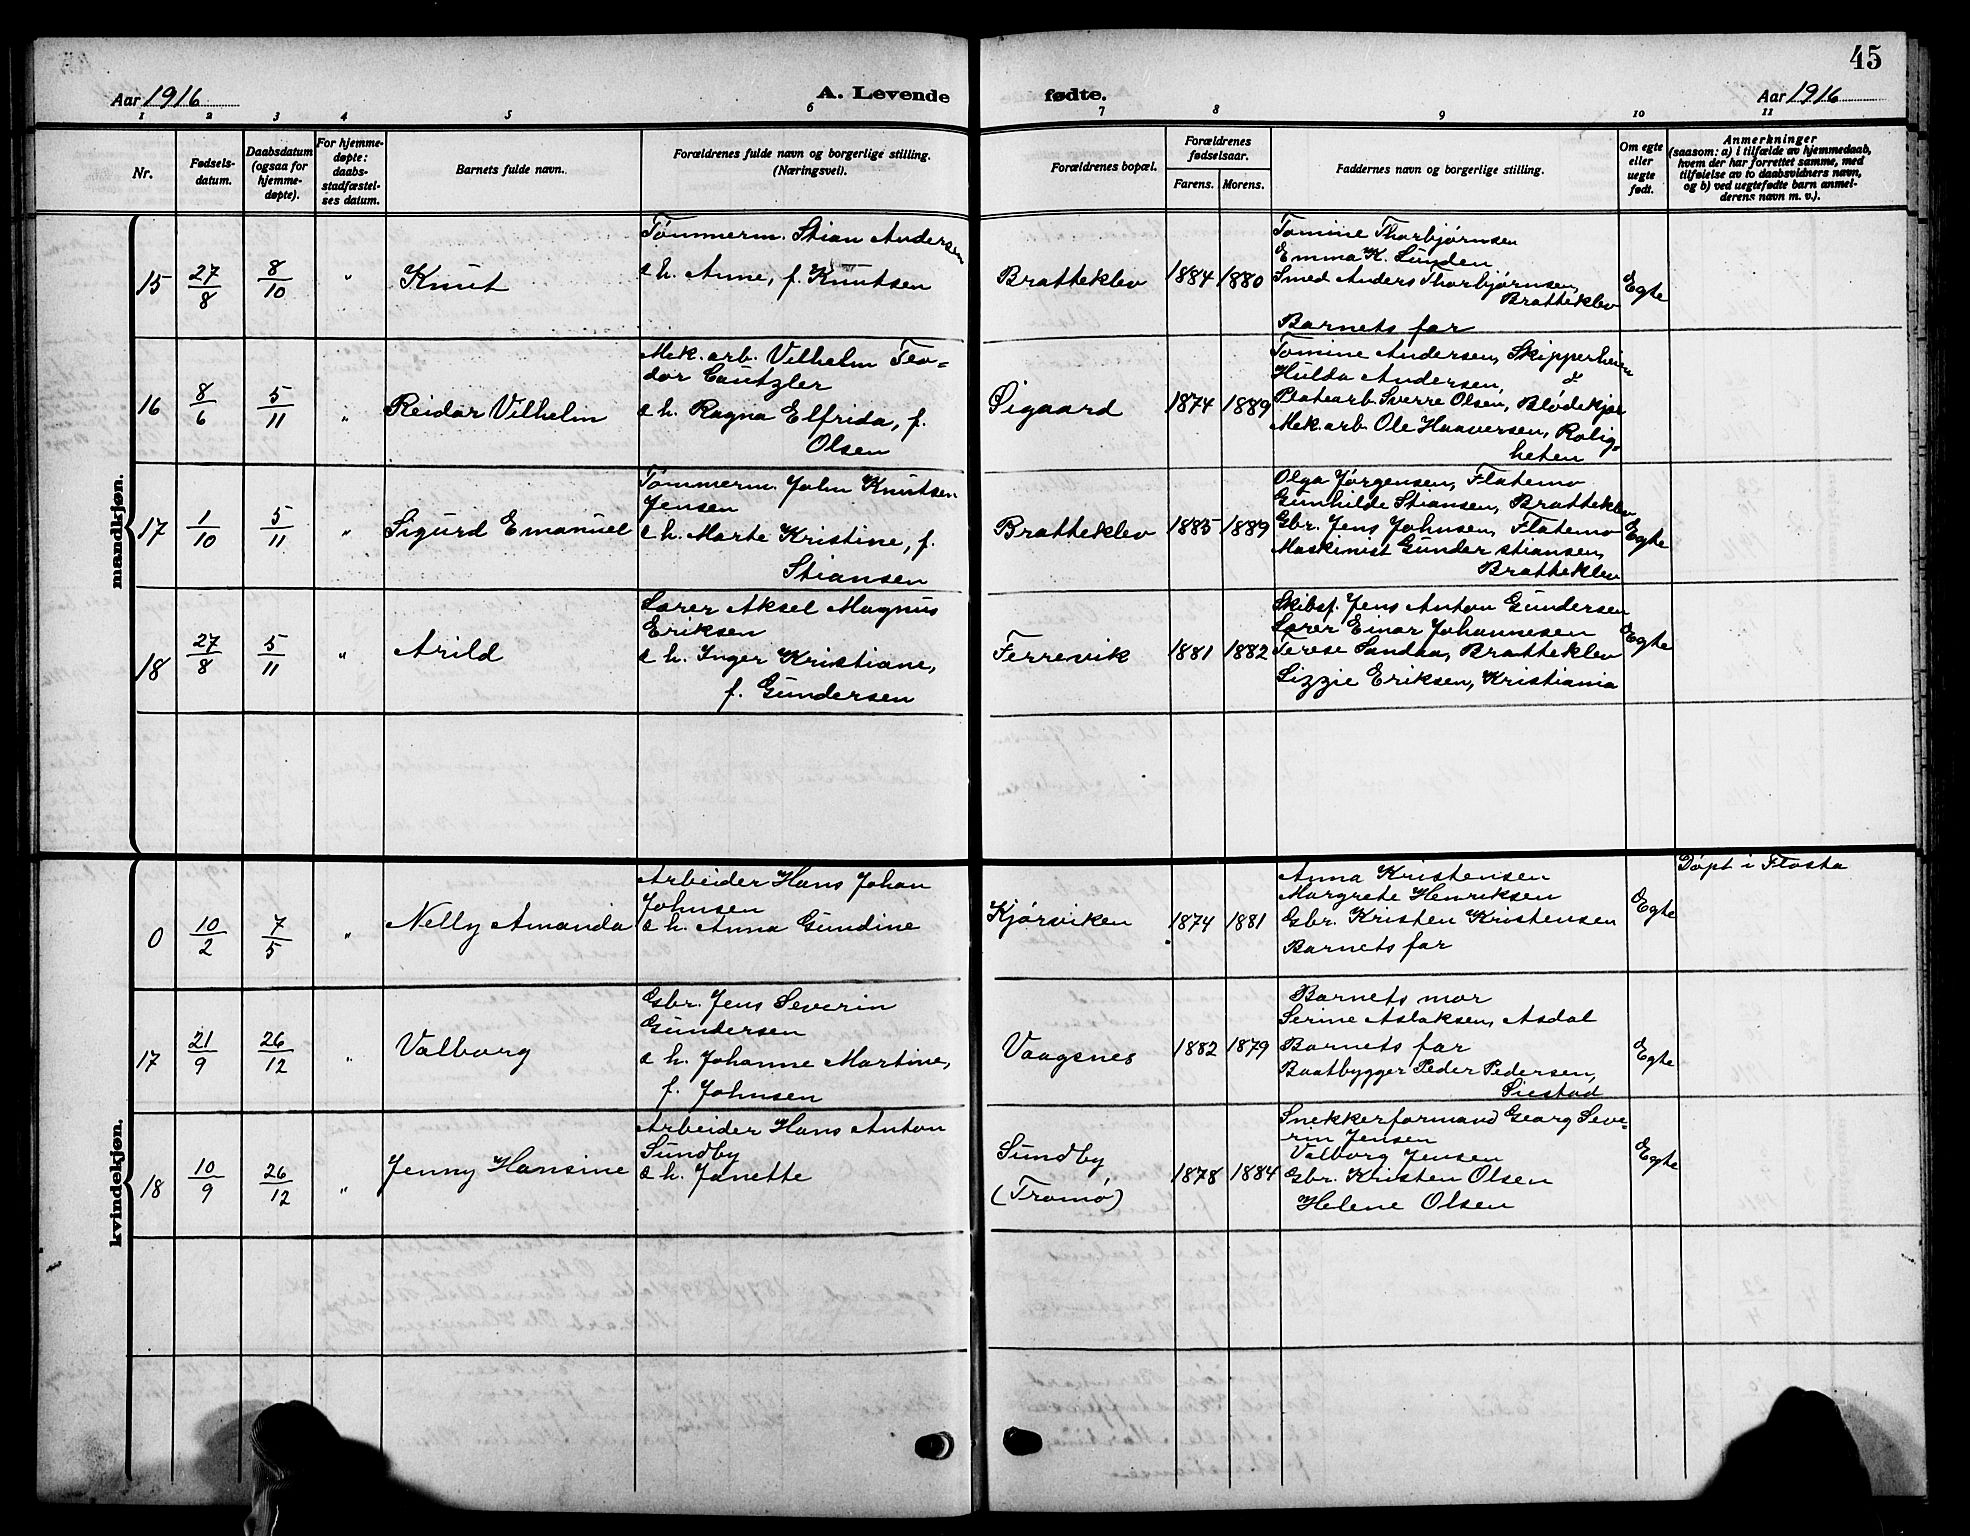 45
Aar 1916
A. Levende
fødte.
Aar 1916
1 2 3 4 5 6 7 8 9 10 11
Nr.
Fødsels-
datum.
Daabsdatum
(ogsaa for
hjemme-
døpte).
For hjemme-
døpte:
daabs-
stadfæstel-
ses datum.
Barnets fulde navn.
Forældrenes fulde navn og borgerlige stilling.
(Næringsvei).
Forældrenes bopæl.
Forældrenes
fødselsaar.
Farens. Morens.
Faddernes navn og borgerlige stilling.
Om egte
eller
uegte
født.
Anmerkninger
(saasom: a) i tilfælde av hjemmedaab,
hvem der har forrettet samme, med
tilføielse av to daabsvidners navn,
og b) ved uegtefødte barn anmel-
derens navn m. v.).
mandkjøn.
15
27/8
8/10
"
Knut
Tømmerm. Stian Andersen
& h. Anne, f. Knutsen
Bratteklev
1884
1880
Tomine Thorbjørnsen
Emma K. Lunden
Smed Anders Thorbjørnsen,
Bratteklev
Barnets far
Egte
16
8/6
5/11
"
Reidar Vilhelm
Mek. arb. Vilhelm Teo-
dor Cautzler
& h. Ragna Elfrida, f.
Olsen
Øigaard
1874
1889
Tomine Andersen, Skipperheien
Hulda Andersen,
Platearb. Sverre Olsen, Blødekjær
Mek. arb. Ole Haaversen, Rolig-
heten
17
1/10
5/11
"
Sigurd Emanuel
Tømmerm. John Knutsen
Jensen
& h. Marte Kristine, f.
Stiansen
Bratteklev
1885
1889
Olga Jørgensen, Flatemo
Gunhilde Stiansen, Bratteklev
Gbr. Jens Johnsen, Flatemo
Maskinist Gunder Stiansen,
Bratteklev
Egte
18
27/8
5/11
"
Arild
Lærer Aksel Magnus
Eriksen
& h. Inger Kristiane,
f. Gundersen
Færrevik
1881
1882
Skibsf. Jens Anton Gundersen
Lærer Einar Johannesen
Terese Sandaa, Bratteklev
Lizzie Eriksen, Kristiania
Egte
kvindekjøn.
0
10/2
7/5
"
Nelly Amanda
Arbeider Hans Johan
Johnsen
& h. Anna Gundine
Kjørviken
1874
1881
Anna Kristensen
Margrete Henriksen
Gbr. Kristen Kristensen
Barnets far
Egte
Døpt i Flosta
17
21/9
26/12
"
Valborg
Gbr. Jens Severin
Gundersen
& h. Johanne Martine,
f. Johnsen
Vaagsnes
1882
1879
Barnets mor
Serine Aslaksen, Asdal
Barnets far
Baatbygger Peder Pedersen,
Egte
18
10/9
26/12
"
Jenny Hansine
Arbeider Hans Anton
Sundby
& h. Janette
Sundby
(Tromø)
1878
1884
Snekkerformand Georg Seve-
rin Jensen
Valborg Jensen
Gbr. Kristen Olsen
Helene Olsen
Egte